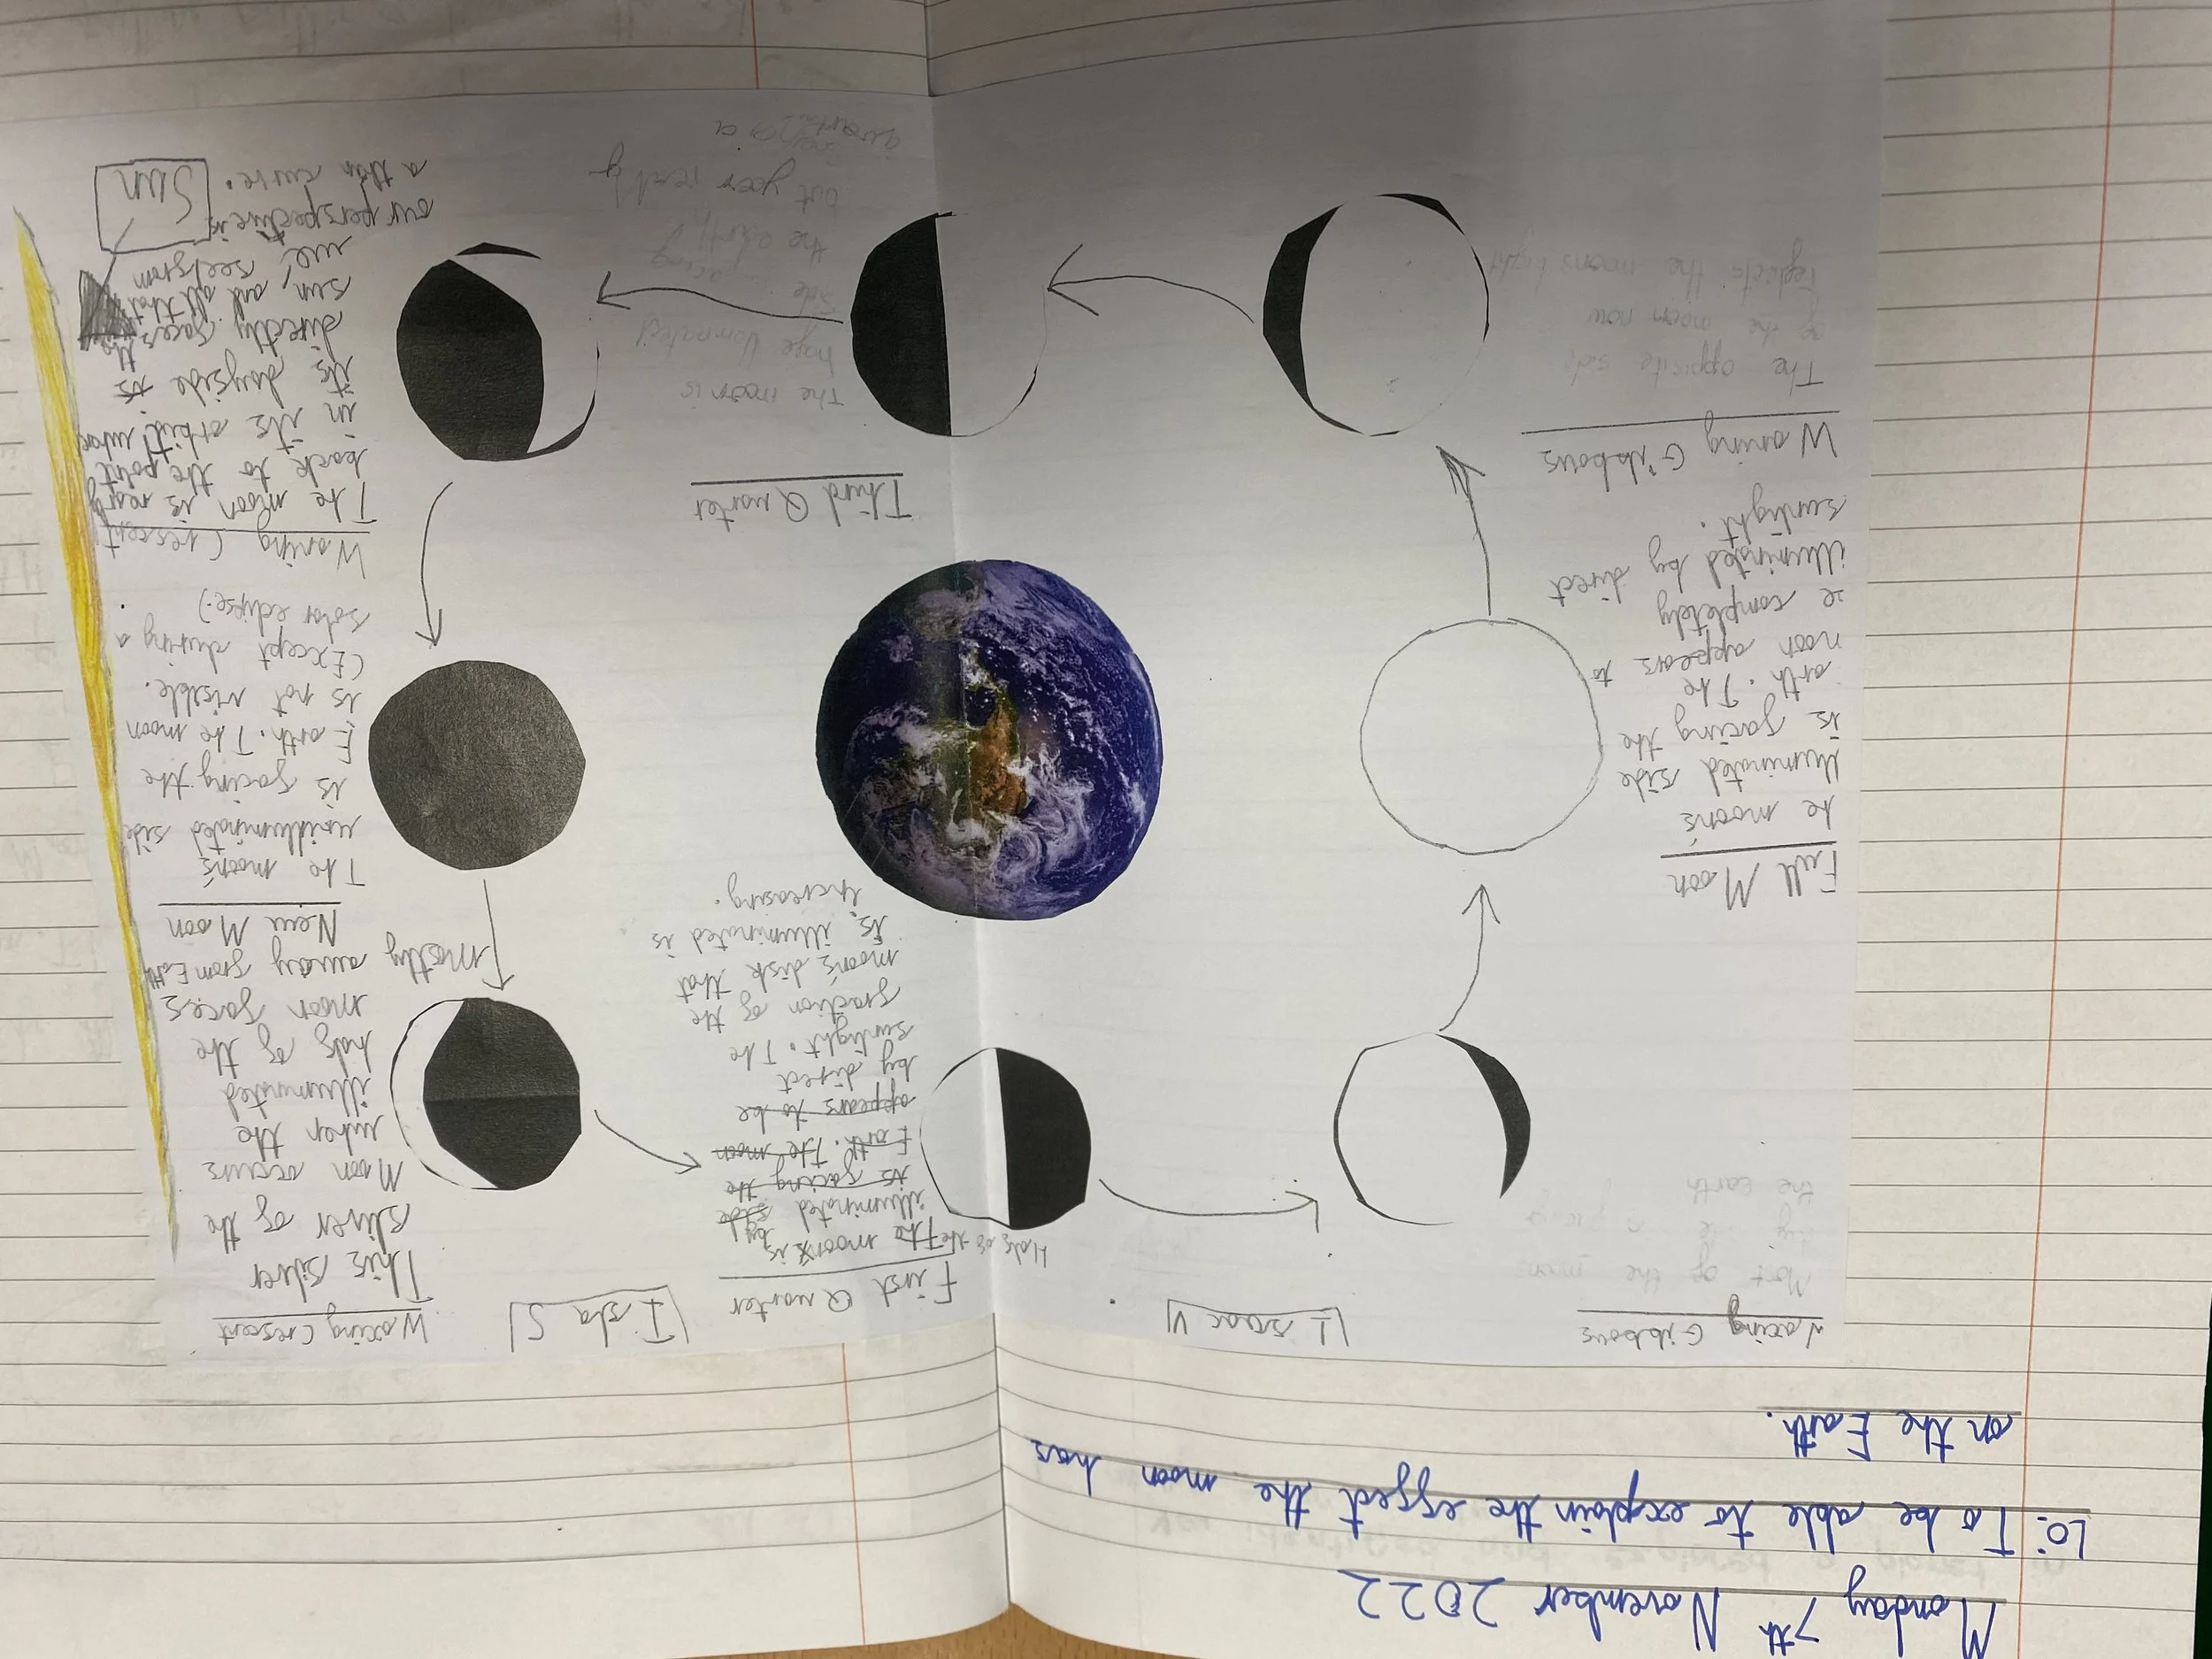 Monday 7th November 2022
LO: To be able to explain the effect the moon has
on the Earth.
Waxing Gibbous
Most of the moon
the earth
Isaac V
First Quarter
Half of the The moon's is
illuminated side by
is facing the
Earth. The moon
appears to be
by direct
sunlight. The
fraction of the
moon's disk that
is illuminated is
increasing.
Isla S
Waxing Crescent
This silver
sliver of the
Moon occurs
when the
illuminated
half of the
moon faces
mostly away from Earth
Full Moon
he moon's
illuminated side
is facing the
arth. The
noon appears to
e completely
illuminated by direct
sunlight.
New Moon
The moon's
unilluminated side
is facing the
Earth. The moon
is not visible.
(Except during a
solar eclipse.)
Waning Gibbous
The opposite side
of the moon now
reflects the moons light
Third Quarter
The moon is
half
side facing
the earth
but your really
a
quarter
Waning Crescent
The moon is nearly
back to the point
in its orbit where
its dayside is
directly faces the
sun, and all that
we, see from
our perspective is
a thin curve.
Sun